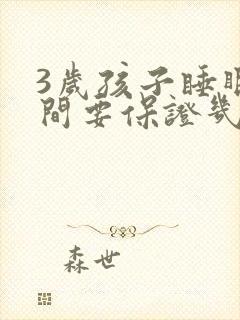 3歲孩子睡眠
間要保證幾
森世